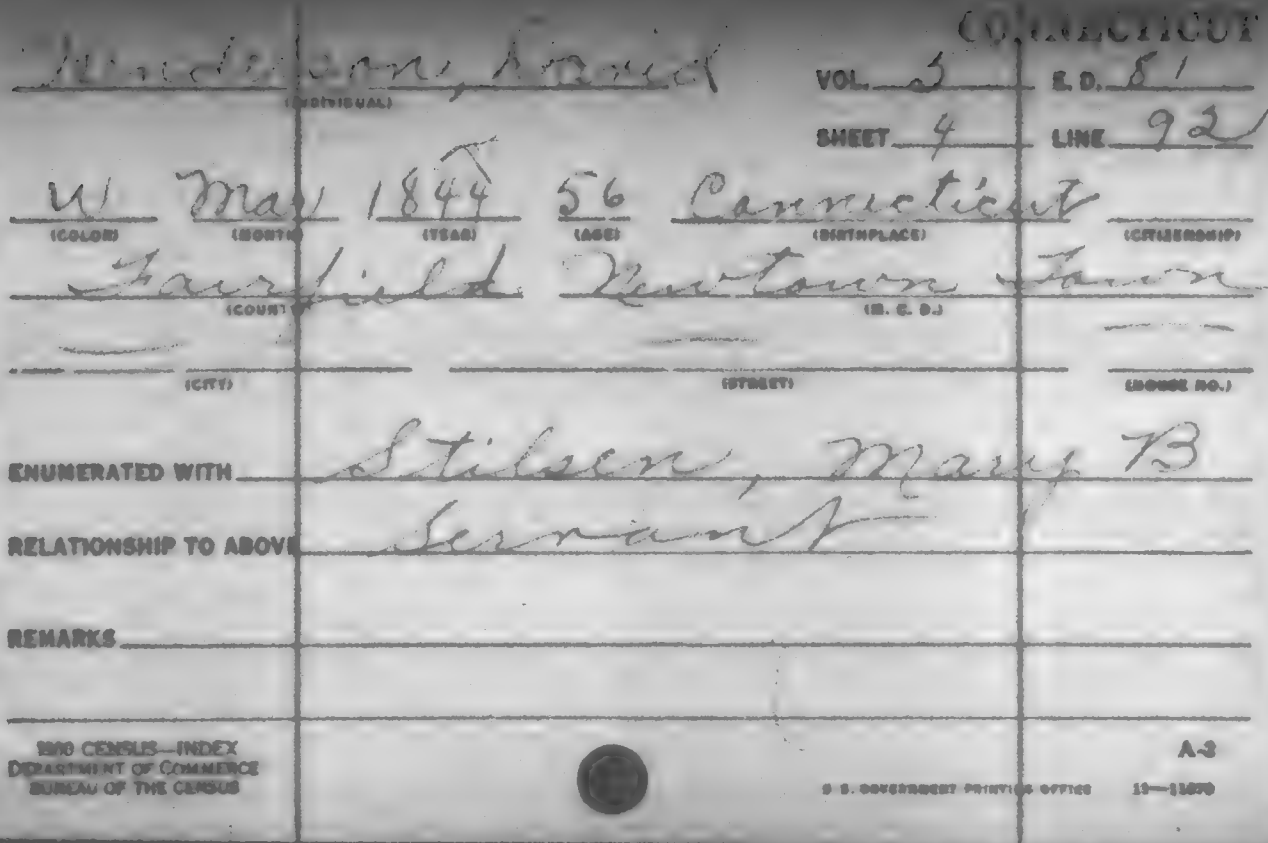 CONNECTICUT
David VOL. E. D. 81
(INDIVIDUAL)
SHEET 4 LINE 92
W May 1844 56 Connecticut
(COLOR) (MONTH) (YEAR) (AGE) (BIRTHPLACE) (CITIZENSHIP)
Fairfield Newtown Town
(COUNTY) (M. C. D.)
(CITY) (STREET) (HOUSE NO.)
ENUMERATED WITH Stilsen, Mary B
RELATIONSHIP TO ABOVE Servant
REMARKS
1900 CENSUS—INDEX
DEPARTMENT OF COMMERCE
BUREAU OF THE CENSUS
A-2
U S. GOVERNMENT PRINTING OFFICE